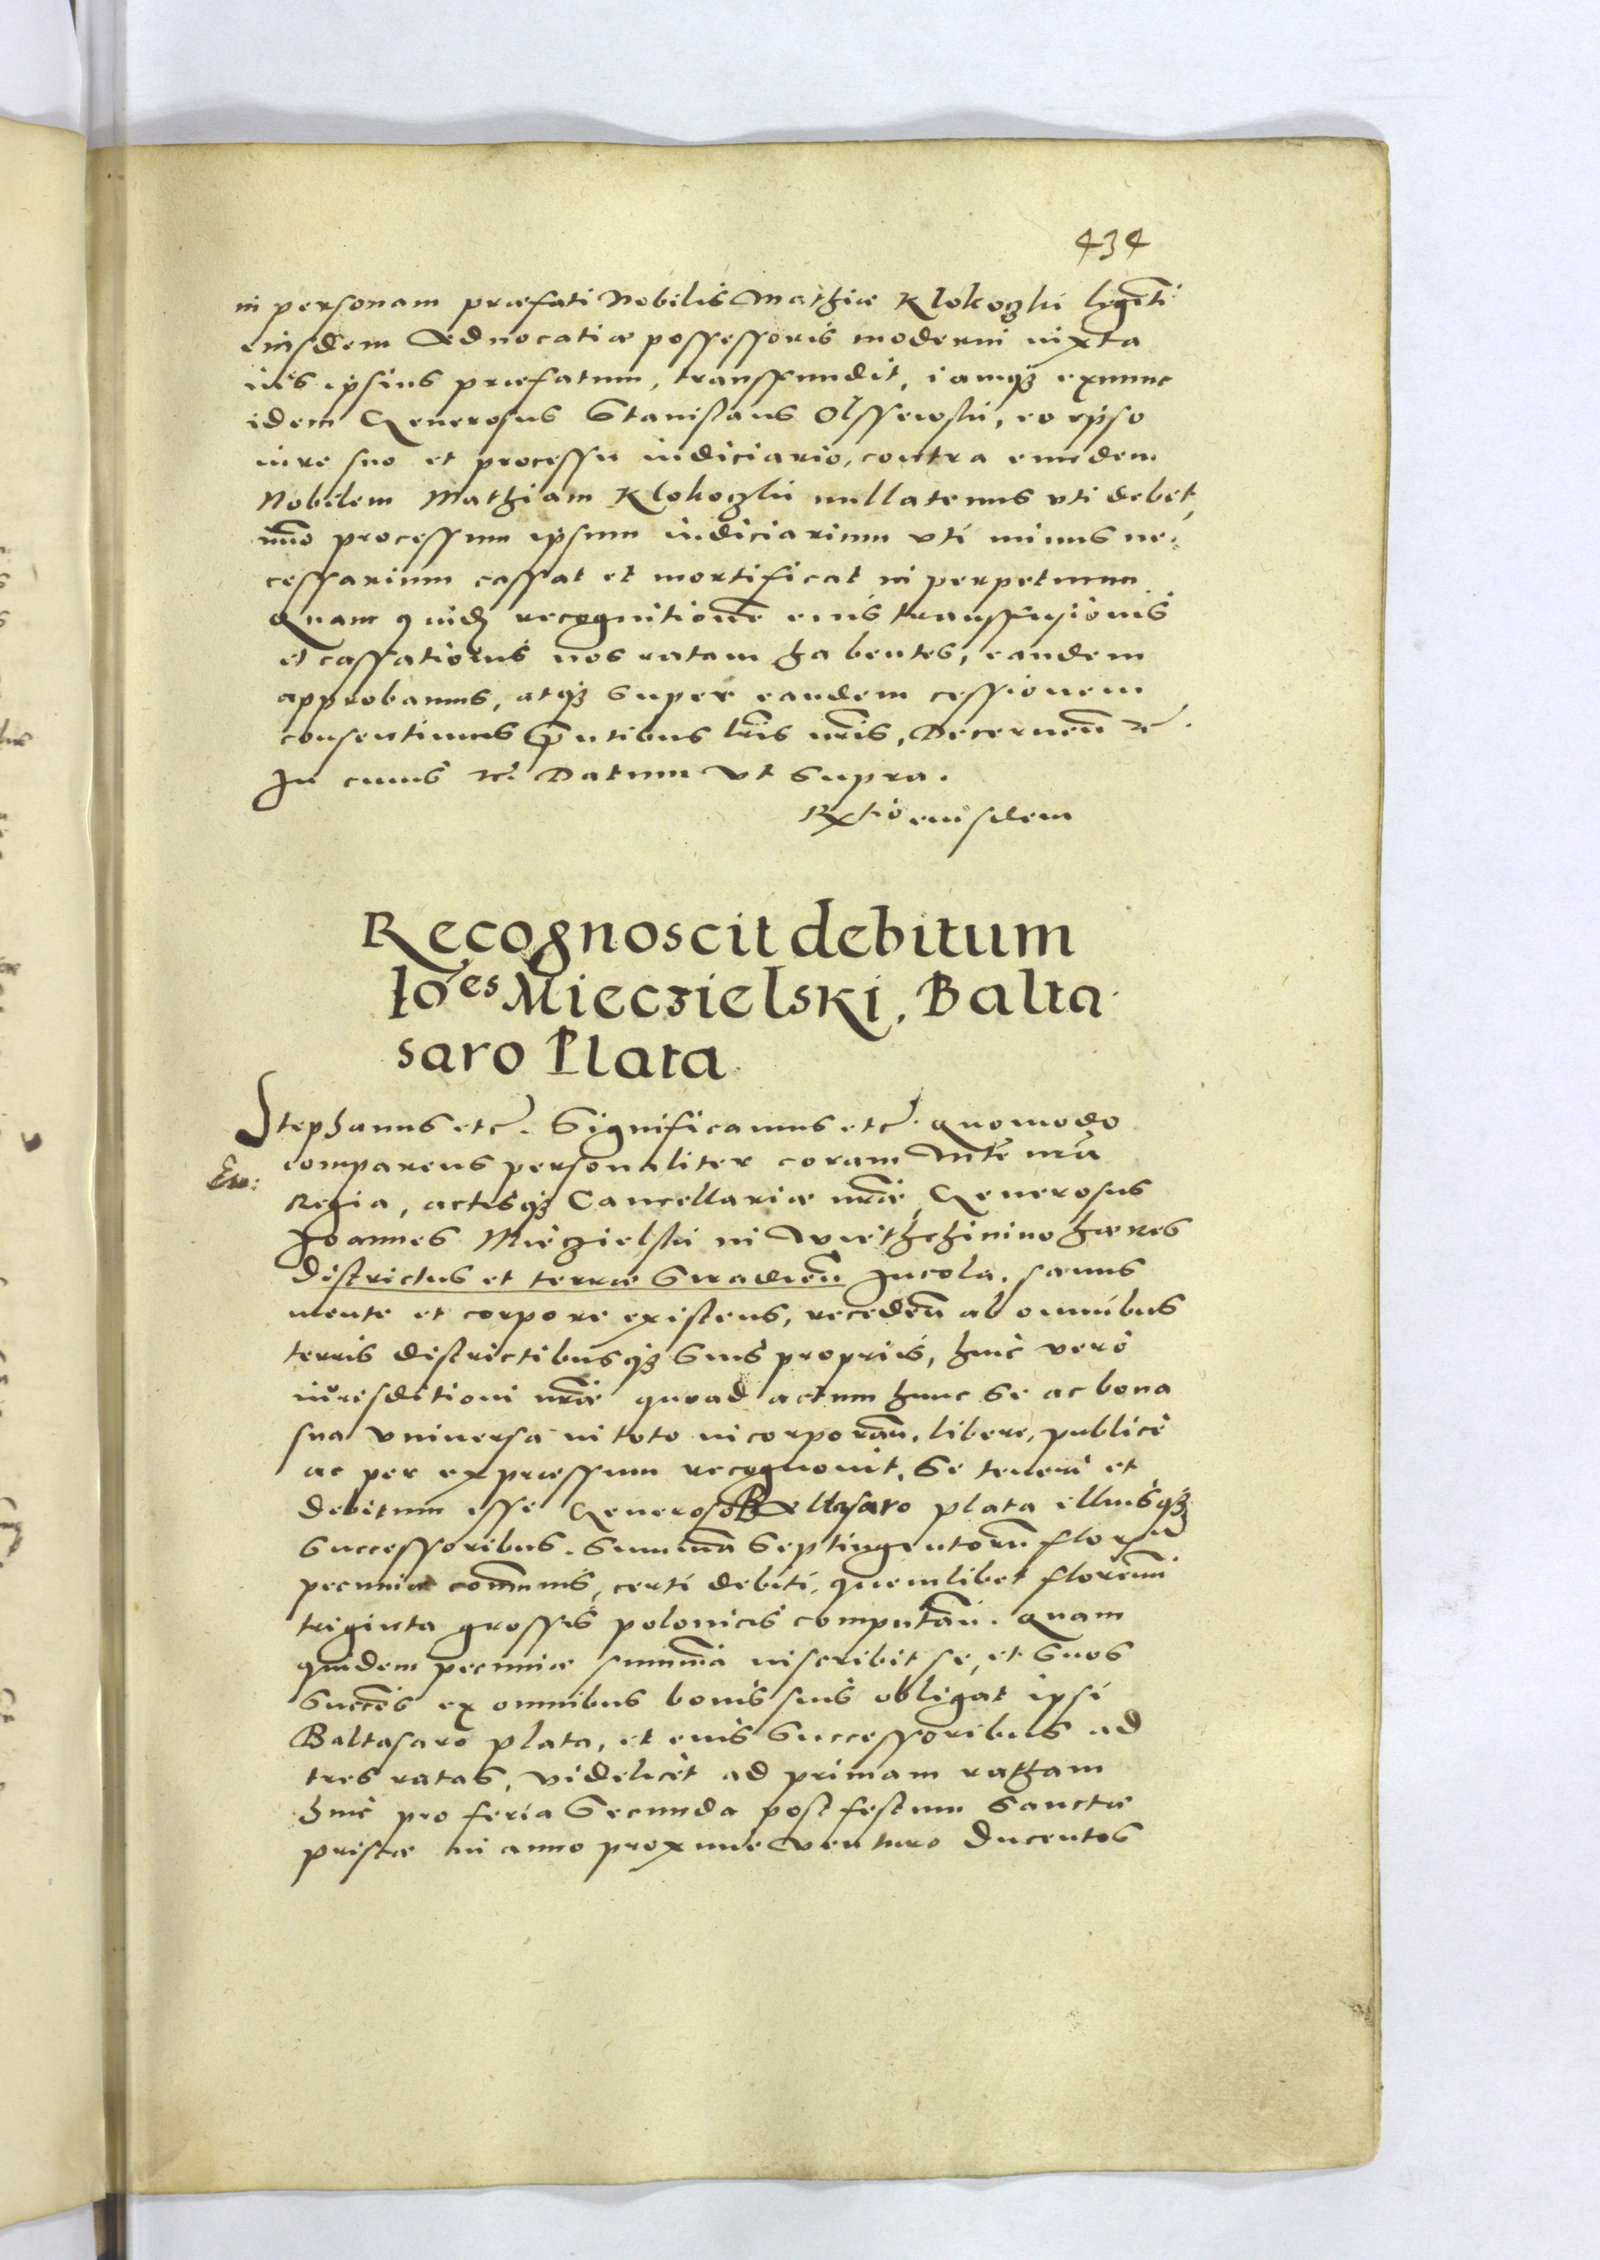 434
in personam præfati Nobilis Mathiæ Klokoczki legitti
eiusdem Aduocatiæ possessoris moderni iuxta
ius ipsius præfatum, transfundit, iamq3 exnunc
idem Generosus Stanislaus Olssewski, eo ipso
iure suo et processu iudiciario, contra eundem
Nobilem Mathiam Klokoczki nullatenus vti debet,
immo processum ipsum iudiciarium vti minus ne:
cessarium cassat et mortificat in perpetuum
Quam quid recognitionē eius transfusionis
et cassationis nos ratam habentes, eandem
approbamus, atq3 super eandem cessionem
consentimus pntibus lris nris, Decernen̄ etc̃.
In cuius etc̃. Datum vt supra.
Rxtio eiusdem
Recognoscit debitum
Ioes Mieczielski, Balta
saro Plata
Stephanus etc̃. Significamus etc̃. quomodo
comparens personaliter coram Mte nra
Regia, actisq3 Cancellariæ nræ, Generosus
Joannes Mieczielski in Wiethchinino hæres
districtus et terræ Siradien̄ Incola, sanus
mente et corpore existens, receden̄ ab omnibus
terris districtibusq3 suis propriis, huic vero
iurisditioni nræ quoad actum hunc se ac bona
sua vniuersa in toto incorporan̄, libere, publice
ac per expræssum recognouit, Se teneri et
debitum esse Generoso Baltasaro plata illiusq3
successoribus. Summā Septingentorū florenū
pecuniæ commūis, certi debiti, quemlibet florenū
triginta grossis polonicis computan̄. Quam
quidem pecuniæ summā inscribit se, et suos
succēs ex omnibus bonis suis obligat ipsi
Baltasaro plata, et eius successoribus ad
tres ratas, videlicet ad primam ratham
huic pro feria Secunda post festum Sanctæ
priscæ in anno proxime venturo Ducentos